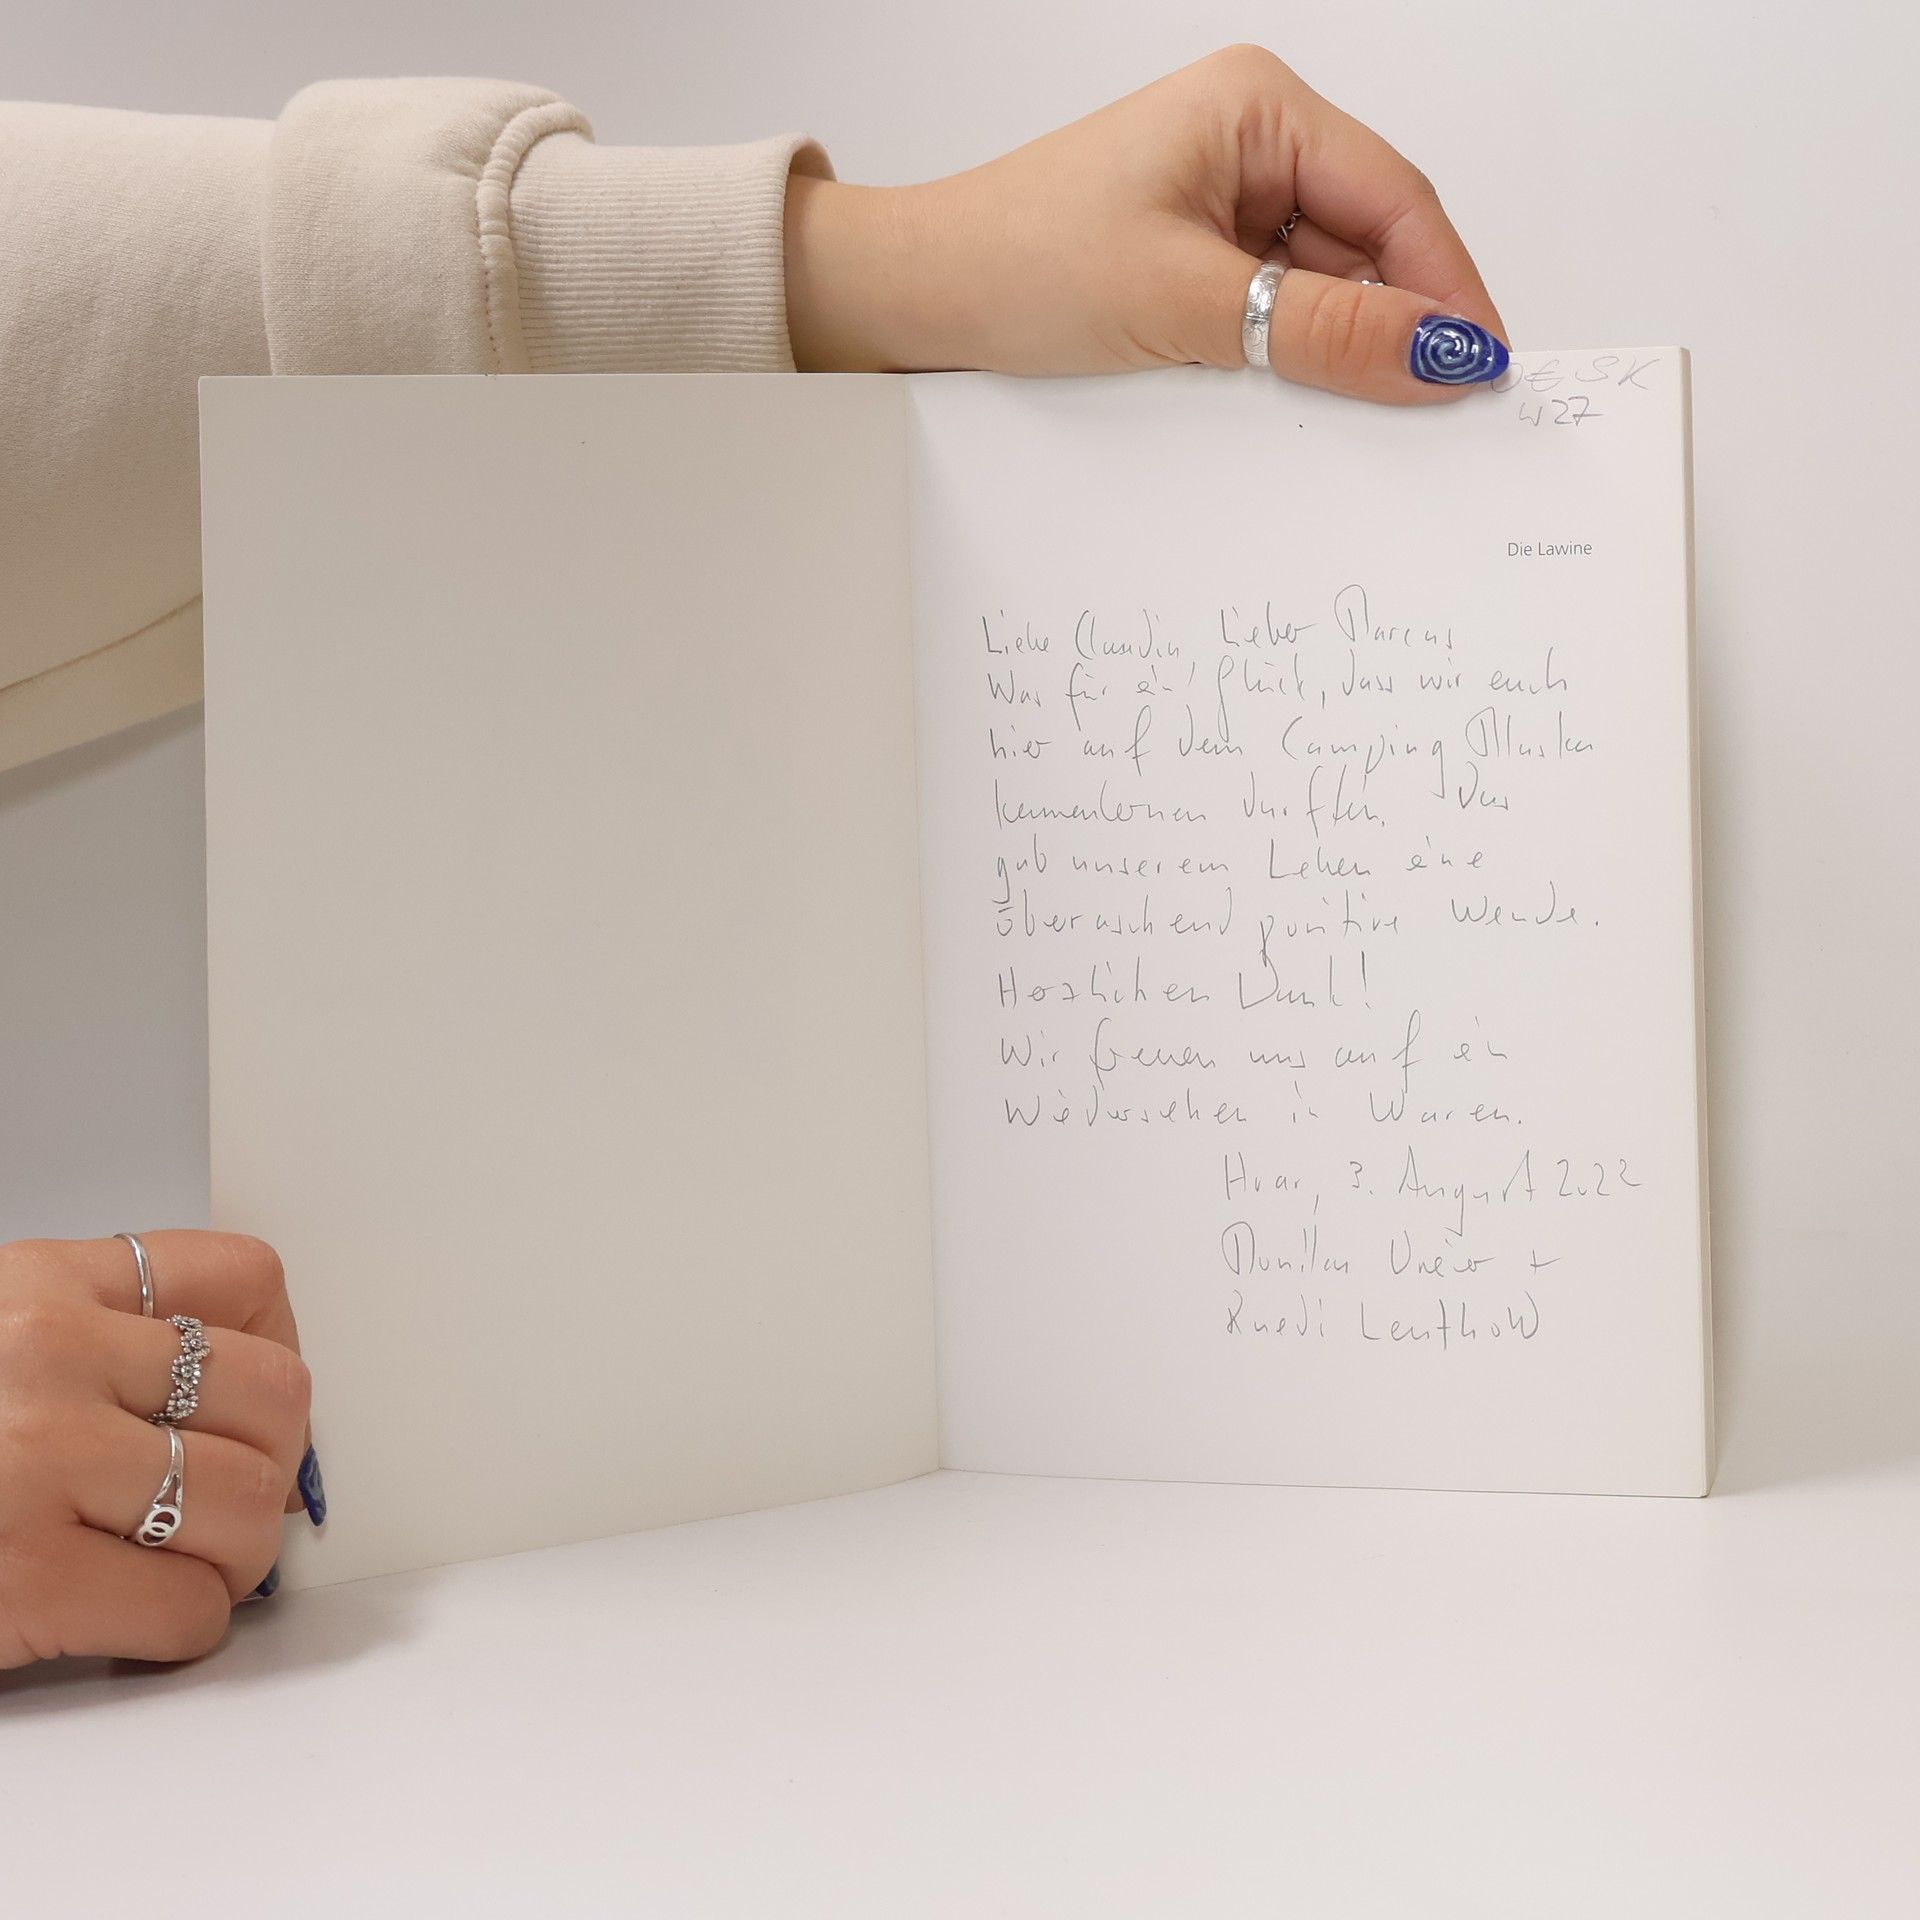 0€ SK
W27
Die Lawine
Liebe Claudia, Lieber Marcus
Was für ein Glück, dass wir euch
hier auf dem Camping
kennenlernen durften. Das
gab unserem Leben eine
überaschend positive Wende.
Herzlichen Dank!
Wir freuen uns auf ein
Wiedersehen in Waren.
Hvar, 3. August 2022
+
Ruedi Leuthold